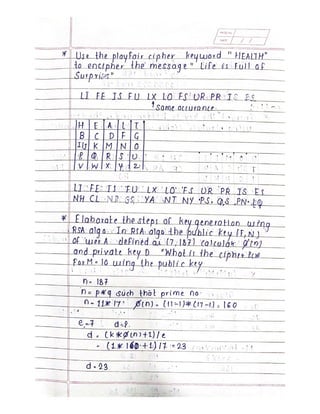 * Use the playfair cipher keyword "HEALTH"
to encipher the message " Life is full of
Surprise"
LI FE IS FU LX LO FS UR PR IS ES
Same occurance
H E A L T
B C D F G
I/J K M N O
P Q R S U
V W X Y Z
LI FE IS FU LX LO FS UR PR IS ES
NH CL YA NT NY PS QS PN
* Elaborate the steps of key generation using
RSA algo. In RSA algo the public key (E,N)
of user A defined as (7,187) calculate Ø(n)
and private key D. "What is the cipher
For M = 10 using the public key
n = 187
n = p*q such that prime no
n = 11*17 Ø(n) = (11-1)*(17-1) = 160
e=7 d=?
d = (k*Ø(n)+1)/e
= (1*160+1)/7 = 23
d = 23